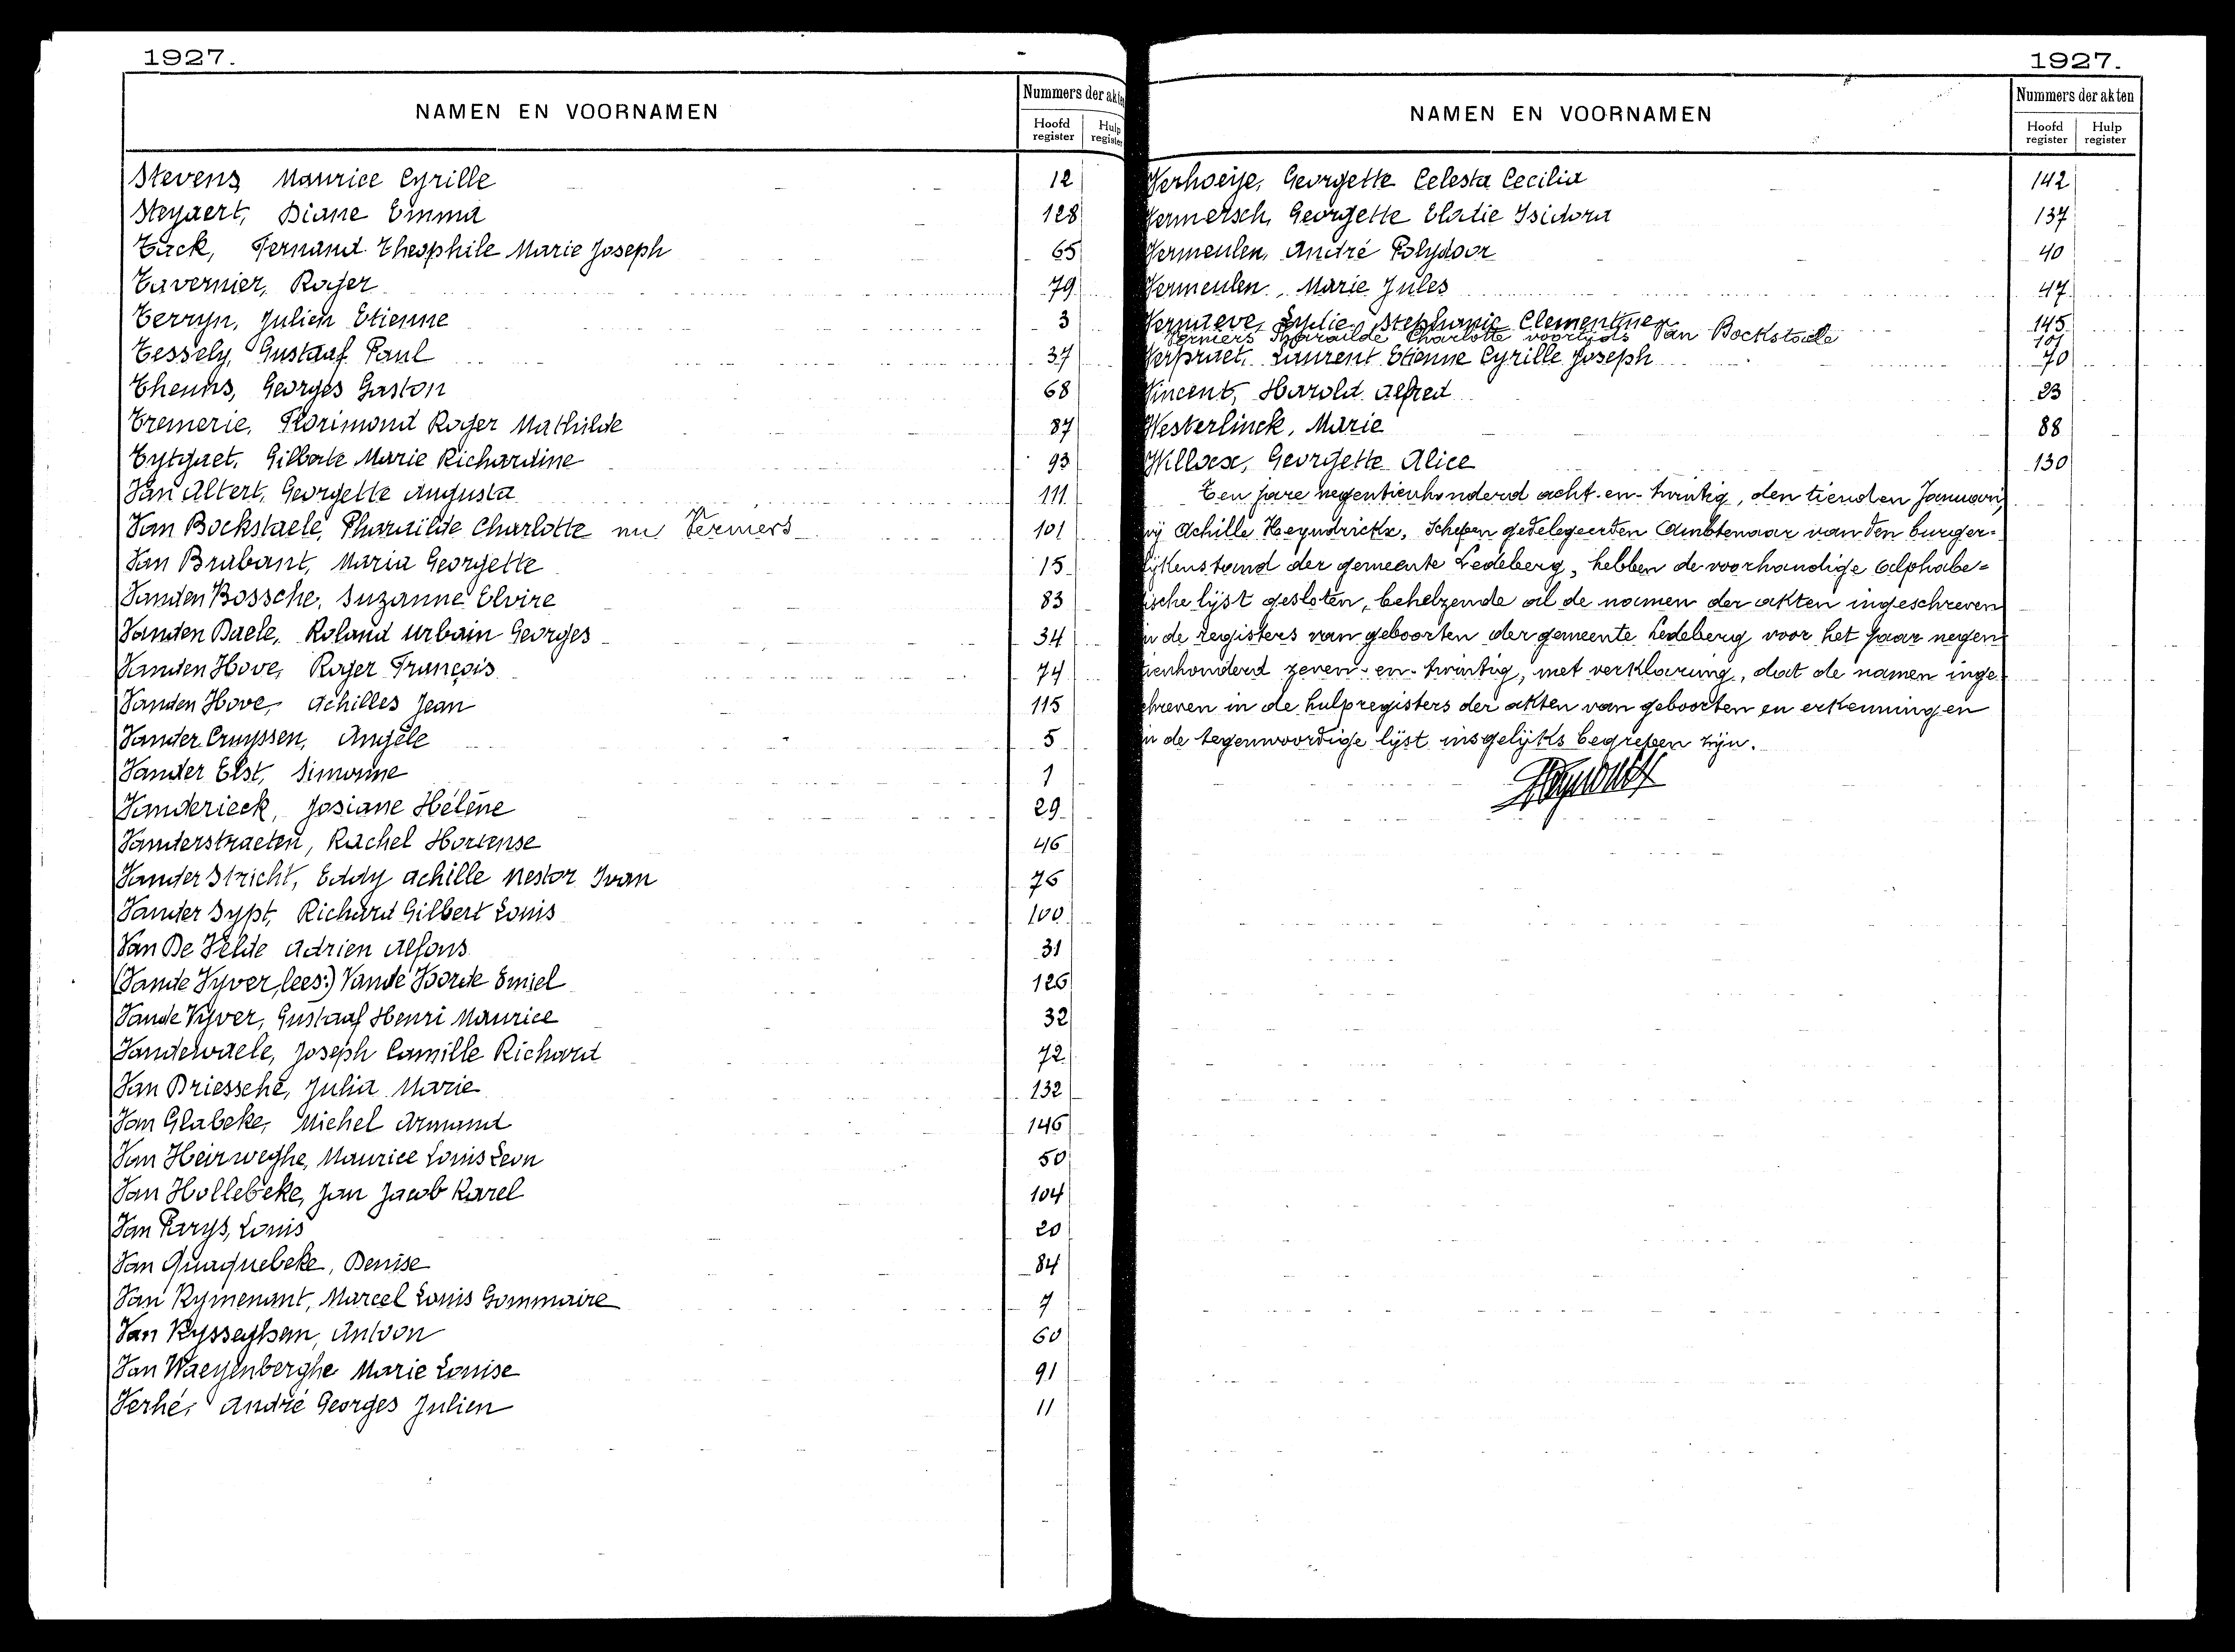 1927.
NAMEN EN VOORNAMEN
Nummers der akten
Hoofd register
Hulp register
Stevens, Maurice Cyrille 12
Steyaert, Diane Emma 128
Tack, Fernand Theophile Marie Joseph 65
Tavernier, Roger 79
Terryn, Julien Etienne 3
Tessely, Gustaaf Paul 37
Theuns, Georges Gaston 68
Tremerie, Florimond Roger Mathilde 87
Tytgaet, Gilberte Marie Richardine 93
Van Altert, Georgette Augusta 111
Van Bockstaele, Pharailde Charlotte nu Verniers 101
Van Brabant, Maria Georgette 15
Vanden Bossche, Suzanne Elvire 83
Vanden Daele, Roland Urbain Georges 34
Vanden Hove, Roger François 74
Vanden Hove, Achilles Jean 115
Vander Cruyssen, Angèle 5
Vander Elst, Simonne 1
Vanderieck, Josiane Hélène 29
Vanderstraeten, Rachel Hortense 46
Vander Stricht, Eddy Achille Nestor Ivan 76
Vander Sypt, Richard Gilbert Louis 100
Van De Velde Adrien Alfons 31
(Vande Vyver, lees:) Vande Voorde Emiel 126
Vande Vyver, Gustaaf Henri Maurice 32
Vandewaele, Joseph Camille Richard 72
Van Driessche, Julia Marie 132
Van Glabeke, Michel Armand 146
Van Heirweghe, Maurice Louis Leon 50
Van Hollebeke, Jan Jacob Karel 104
Van Parys, Louis 20
Van Quaquebeke, Denise 84
Van Rymenant, Marcel Louis Gommaire 7
Van Rysseghem, Antoon 60
Van Waeyenberghe Marie Louise 91
Verhé, André Georges Julien 11
1927.
NAMEN EN VOORNAMEN
Nummers der akten
Hoofd register
Hulp register
Verhoeije, Georgette Celesta Cecilia 142
Vermersch, Georgette Elodie Isidora 137
Vermeulen, André Polydoor 40
Vermeulen, Marie Jules 47
Vernaeve, Lydie Stephanie Clementine 145
Verniers Pharailde Charlotte voortijds Van Bockstaele 101
Verpraet, Laurent Etienne Cyrille Joseph 70
Vincent, Harold Alfred 23
Westerlinck, Marie 88
Willocx, Georgette Alice 130
Ten jare negentienhonderd acht-en-twintig, den tienden Januari,
wij Achille Heyndrickx, Schepen gedelegeerden Ambtenaar van den burger-
lijkenstand der gemeente Ledeberg, hebben de voorhandige alphabe-
tische lijst gesloten, behelzende al de namen der akten ingeschreven
in de registers van geboorten der gemeente Ledeberg voor het jaar negen-
tienhonderd zeven-en-twintig, met verklaring, dat de namen inge-
schreven in de hulpregisters der akten van geboorten en erkenningen
in de tegenwoordige lijst insgelijks begrepen zijn.